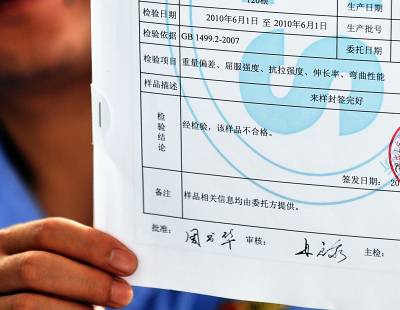 120根 生产日期
检验日期 2010年6月1日 至 2010年6月1日 生产批号
检验依据 GB 1499.2-2007 委托日期
检验项目 重量偏差、屈服强度、抗拉强度、伸长率、弯曲性能
样品描述 来样封签完好
检验结论 经检验，该样品不合格。
签发日期： 20
备注 样品相关信息均由委托方提供。
批准： 审核： 主检：